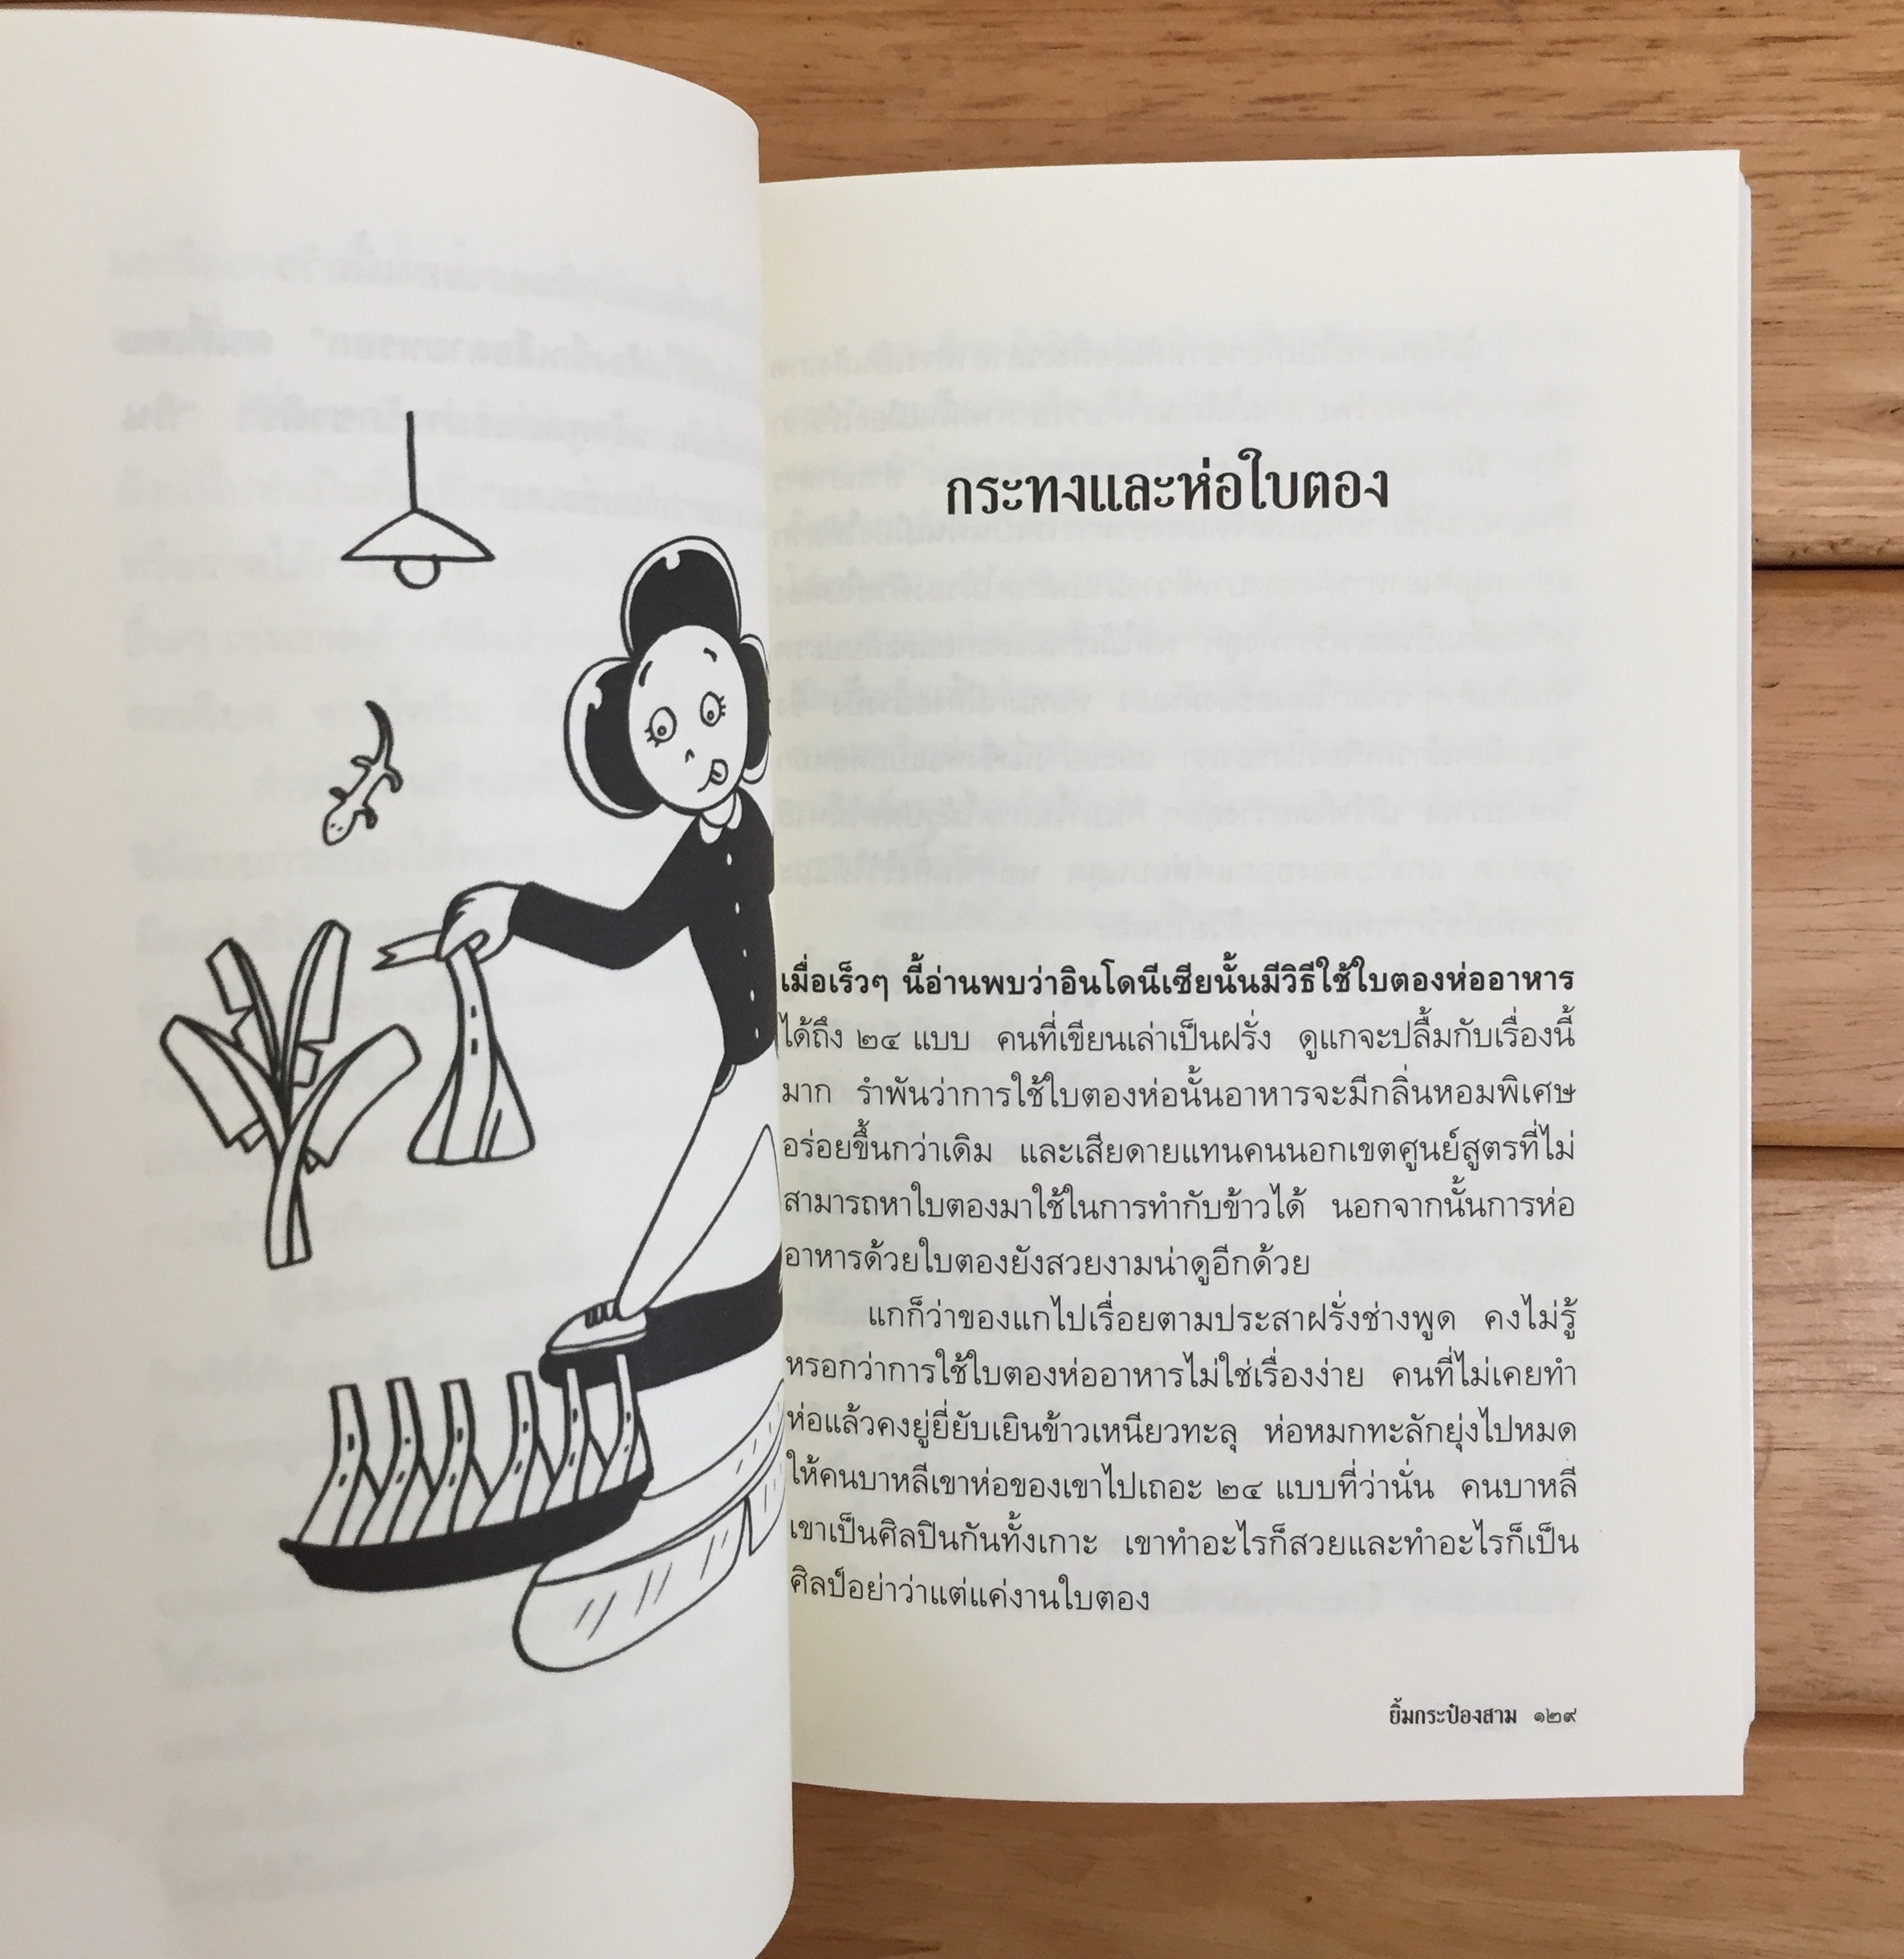 กระทงและห่อใบตอง
เมื่อเร็วๆ นี้อ่านพบว่าอินโดนีเซียนั้นมีวิธีใช้ใบตองห่ออาหาร
ได้ถึง ๒๔ แบบ คนที่เขียนเล่าเป็นฝรั่ง ดูแกจะปลื้มกับเรื่องนี้
มาก รำพันว่าการใช้ใบตองห่อนั้นอาหารจะมีกลิ่นหอมพิเศษ
อร่อยขึ้นกว่าเดิม และเสียดายแทนคนนอกเขตศูนย์สูตรที่ไม่
สามารถหาใบตองมาใช้ในการทำกับข้าวได้ นอกจากนั้นการห่อ
อาหารด้วยใบตองยังสวยงามน่าดูอีกด้วย
แกก็ว่าของแกไปเรื่อยตามประสาฝรั่งช่างพูด คงไม่รู้
หรอกว่าการใช้ใบตองห่ออาหารไม่ใช่เรื่องง่าย คนที่ไม่เคยทำ
ห่อแล้วคงยู่ยี่ยับเยินข้าวเหนียวทะลุ ห่อหมกทะลักยุ่งไปหมด
ให้คนบาหลีเขาห่อของเขาไปเถอะ ๒๔ แบบที่ว่านั่น คนบาหลี
เขาเป็นศิลปินกันทั้งเกาะ เขาทำอะไรก็สวยและทำอะไรก็เป็น
ศิลป์อย่าว่าแต่แค่งานใบตอง
ยิ้มกระป๋องสาม ๑๒๙